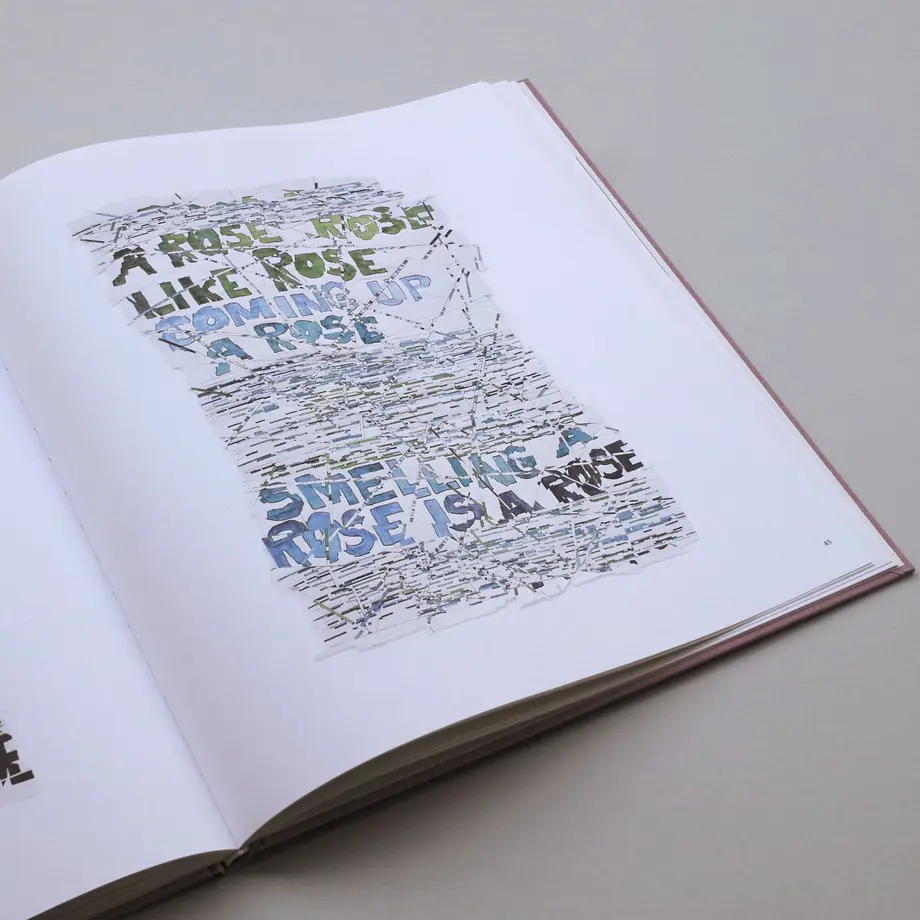 A ROSE ROSE
LIKE ROSE
COMING UP
A ROSE
SMELLING A
ROSE IS A ROSE
45